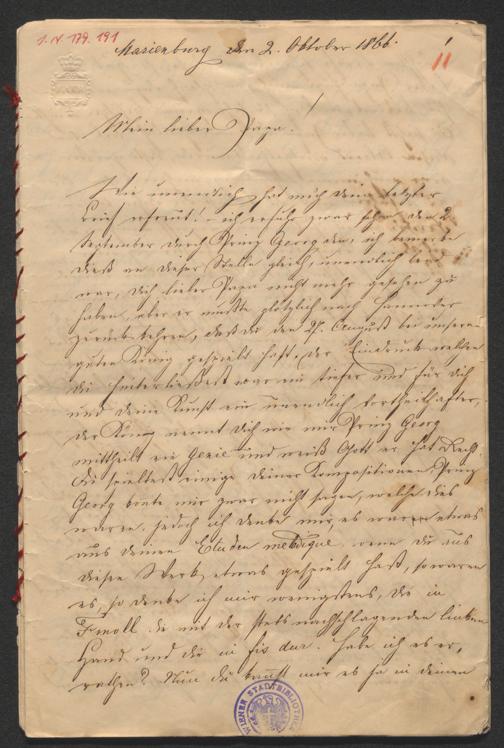 J. N. 179. 191
Marienburg den 2. Oktober 1866.
11
Mein lieber Papa!
Wie unendlich hat mich dein letzter
Brief erfreut! – ich erfuhr zwar schon den 2.
September durch Prinz Georg den, ich bemerke
dieß an dieser Stelle gleich, unendlich leid
war, dich lieber Papa nicht mehr gesehen zu
haben, aber er mußte plötzlich nach Hannover
zurückkehren, daß du den 27. August bei unserem
guten König gespielt hast, der Eindruck welchen
du hinterließest war ein tiefer und für dich
und deine Kunst ein unendlich vortheilhafter,
der König nennt dich wie mir Prinz Georg
mittheilt ein Genie und weiß Gott er hat Recht.
Du spieltest einige deiner Kompositionen Prinz
Georg konte mir zwar nicht sagen, welche dies
waren, jedoch ich denke mir, es waren etwas
aus deinen Etuden melodique, wenn du aus
diesem Werk etwas gespielt hast, so waren
es, so denke ich mir wenigstens, die in
F moll die mit der stets nachschlagenden linken
Hand und die in fis dur. habe ich es er,
rathen? Nun du kannst mir es ja in deinem
WIENER STADTBIBLIOTHEK